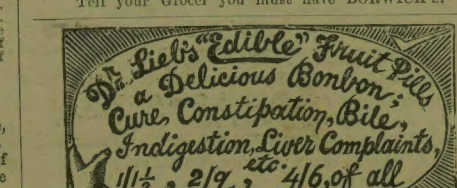 Tell your Grocer you must have BORWICK'S.
Dr. Lieb's "Edible" Fruit Pills
a Delicious Bonbon;
Cure Constipation, Bile,
Indigestion, Liver Complaints,
etc.
1/1½, 2/9, 4/6, of all